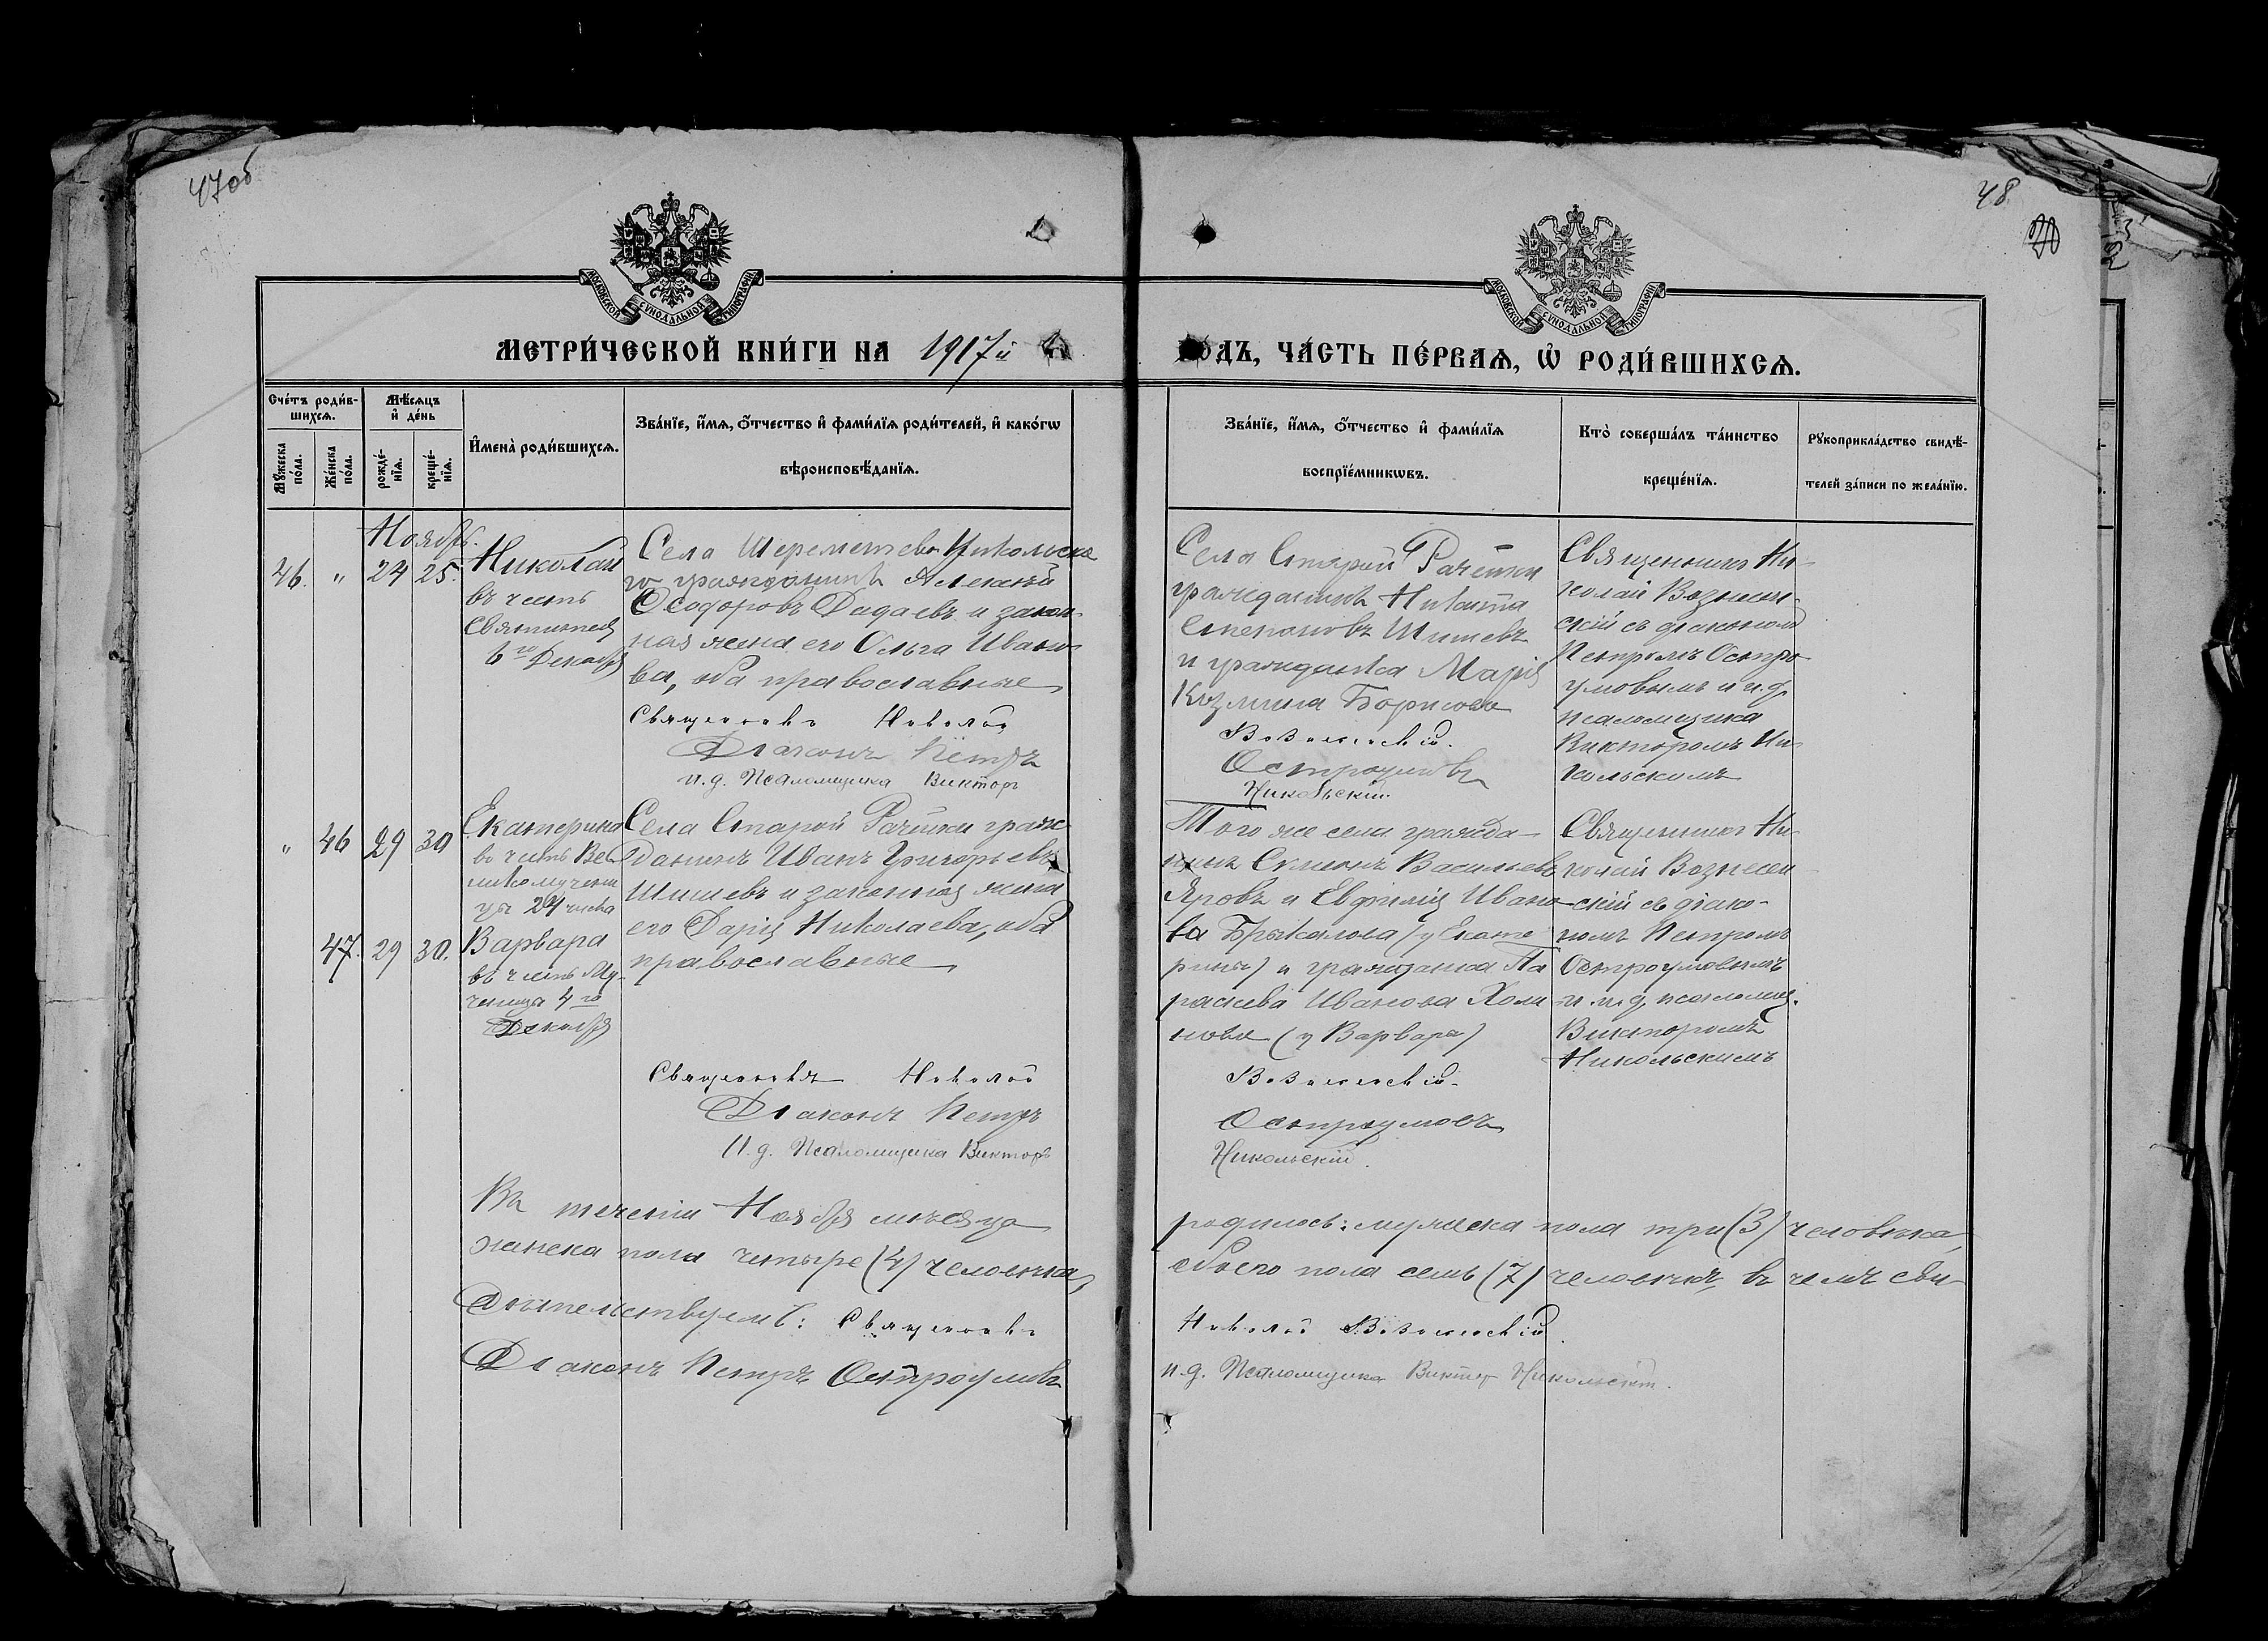 47об
48
МОСКОВСКОЙ СѴНОДАЛЬНОЙ ТИПОГРАФІИ
МОСКОВСКОЙ СѴНОДАЛЬНОЙ ТИПОГРАФІИ
МЕТРИ́ЧЕСКОЙ КНИ́ГИ НА 1917й
ГОДЪ, ЧА́СТЬ ПЕ́РВАѦ, Ѡ҆ РОДИ́ВШИХСѦ.
Сче́тъ роди́в-
шихсѧ.
Мѣ́сѧцъ
и҆ де́нь
Мꙋ́жеска
по́ла.
Же́нска
по́ла.
рожде́-
нїѧ.
креще́-
нїѧ.
И҆мена̀ роди́вшихсѧ.
Зва́нїе, и҆́мѧ, ѻ҆́тчество и҆ фами́лїѧ роди́телей, и҆ како́гѡ
вѣроисповѣ́данїѧ.
Зва́нїе, и҆́мѧ, ѻ҆́тчество и҆ фами́лїѧ
воспрїе́мникѡвъ.
Кто̀ соверша́лъ та́инство
креще́нїѧ.
Рꙋкоприкла́дство свидѣ́-
телей за́писи по жела́нїю.
Ноябрь.
46. " 24 25.
Николай
въ честь
Святителя
6го Декабря
Села Шереметева Никольска
го гражданинъ Алексѣй
Ѳеодоровъ Дадаевъ и закон-
ная жена его Ольга Ивано-
ва, оба православные
Священникъ Николай
Діаконъ Петръ
и.д. Псаломщика Викторъ
Села Старой Рачейки
гражданинъ Никита
Степановъ Шишевъ
и гражданка Марія
Козмина Борисова
Вознесенскій.
Остроумовъ
Никольскій.
Священникъ Ни-
колай Вознесен-
скій съ діакономъ
Петромъ Остро-
умовымъ и и.д.
псаломщика
Викторомъ Ни-
кольскимъ
" 46 29 30
Екатерина
въ честь Ве-
ликомучени
цы 24 числа
47. 29 30.
Варвара
въ честь Му-
ченица 4го
Декабря
Села Старой Рачейки граж
данинъ Иванъ Григорьевъ
Шишевъ и законная жена
его Дарія Николаева, оба
православные
Священникъ Николай
Діаконъ Петръ
И.д. Псаломщика Викторъ
Того же села гражда-
нинъ Симеонъ Васильевъ
Яровъ и Евфимія Ивано-
ва Брыкалова (у Екате
рины) и гражданка Па
раскева Иванова
(у Варвара)
Вознесенскій.
Остроумовъ
Никольскій.
Священникъ Ни-
колай Вознесен
скій съ діако-
номъ Петромъ
Остроумовымъ
и и.д. псаломщ.
Викторомъ
Никольскимъ
Въ теченіи Ноября мѣсяца
родилось: мужеска пола три (3) человѣка,
женска пола четыре (4) человѣка,
обоего пола семь (7) человѣкъ, въ чемъ сви-
дѣтельствуемъ: Священникъ
Николай Вознесенскій.
Діаконъ Петръ Остроумовъ
и.д. Псаломщика Викторъ Никольскій.